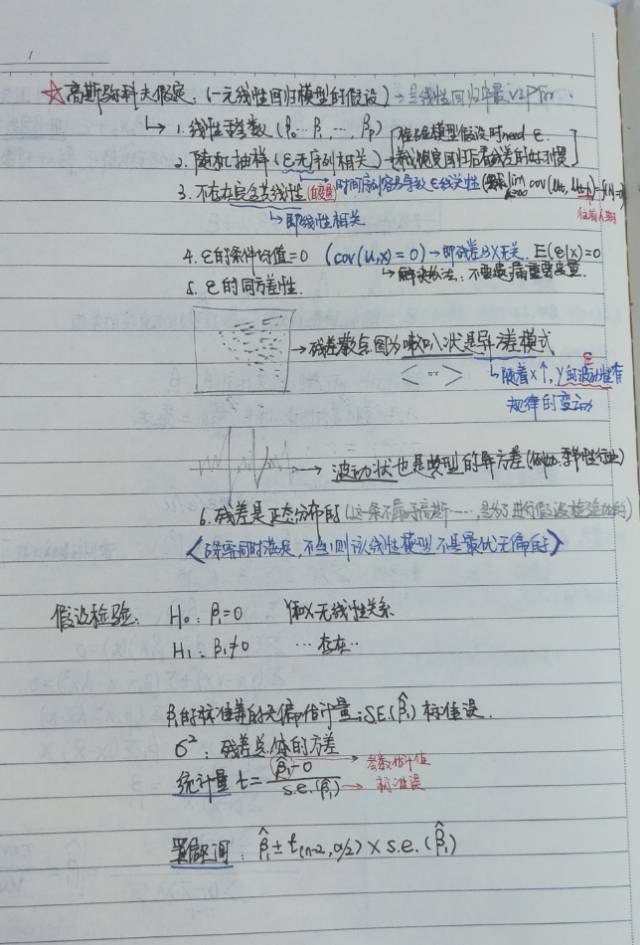 1
☆高斯马科夫假定:(一元线性回归模型的假设)→是线性回归中最
↳ 1. 线性于参数(β₀…β₁…,βp)
2. 随机抽样(ε无序列相关)→
3. 不存在完全共线性(自变量) 时间序列容易导致ε线关性 lim cov(
往前n期
→即线性相关
4. ε的条件均值=0 (cov(u,x)=0)→即残差与X无关. E(ε|x)=0
↳解决办法:不要遗漏重要变量.
5. ε的同方差性.
→残差散点图为喇叭状是异方差模式
< or >
ε
↳随着x↑,y的波动性有
规律的变动
→波动状也是典型的异方差(例如:季节性行业)
6. 残差是正态分布的(这一条不属于高斯……,是为了进行假设检验
《6条需同时满足,不然则该线性模型不是最优无偏的》
假设检验: H₀:β₁=0 Y和X无线性关系
H₁:β₁≠0 …存在…
β₁的标准差的无偏估计量:SE.(β̂₁) 标准误.
σ²:残差总体的方差
统计量 t = (β̂₁-0)/s.e.(β̂₁) →参数估计值
→标准误
置信区间: β̂₁ ± t(n-2,α/2) × s.e.(β̂₁)